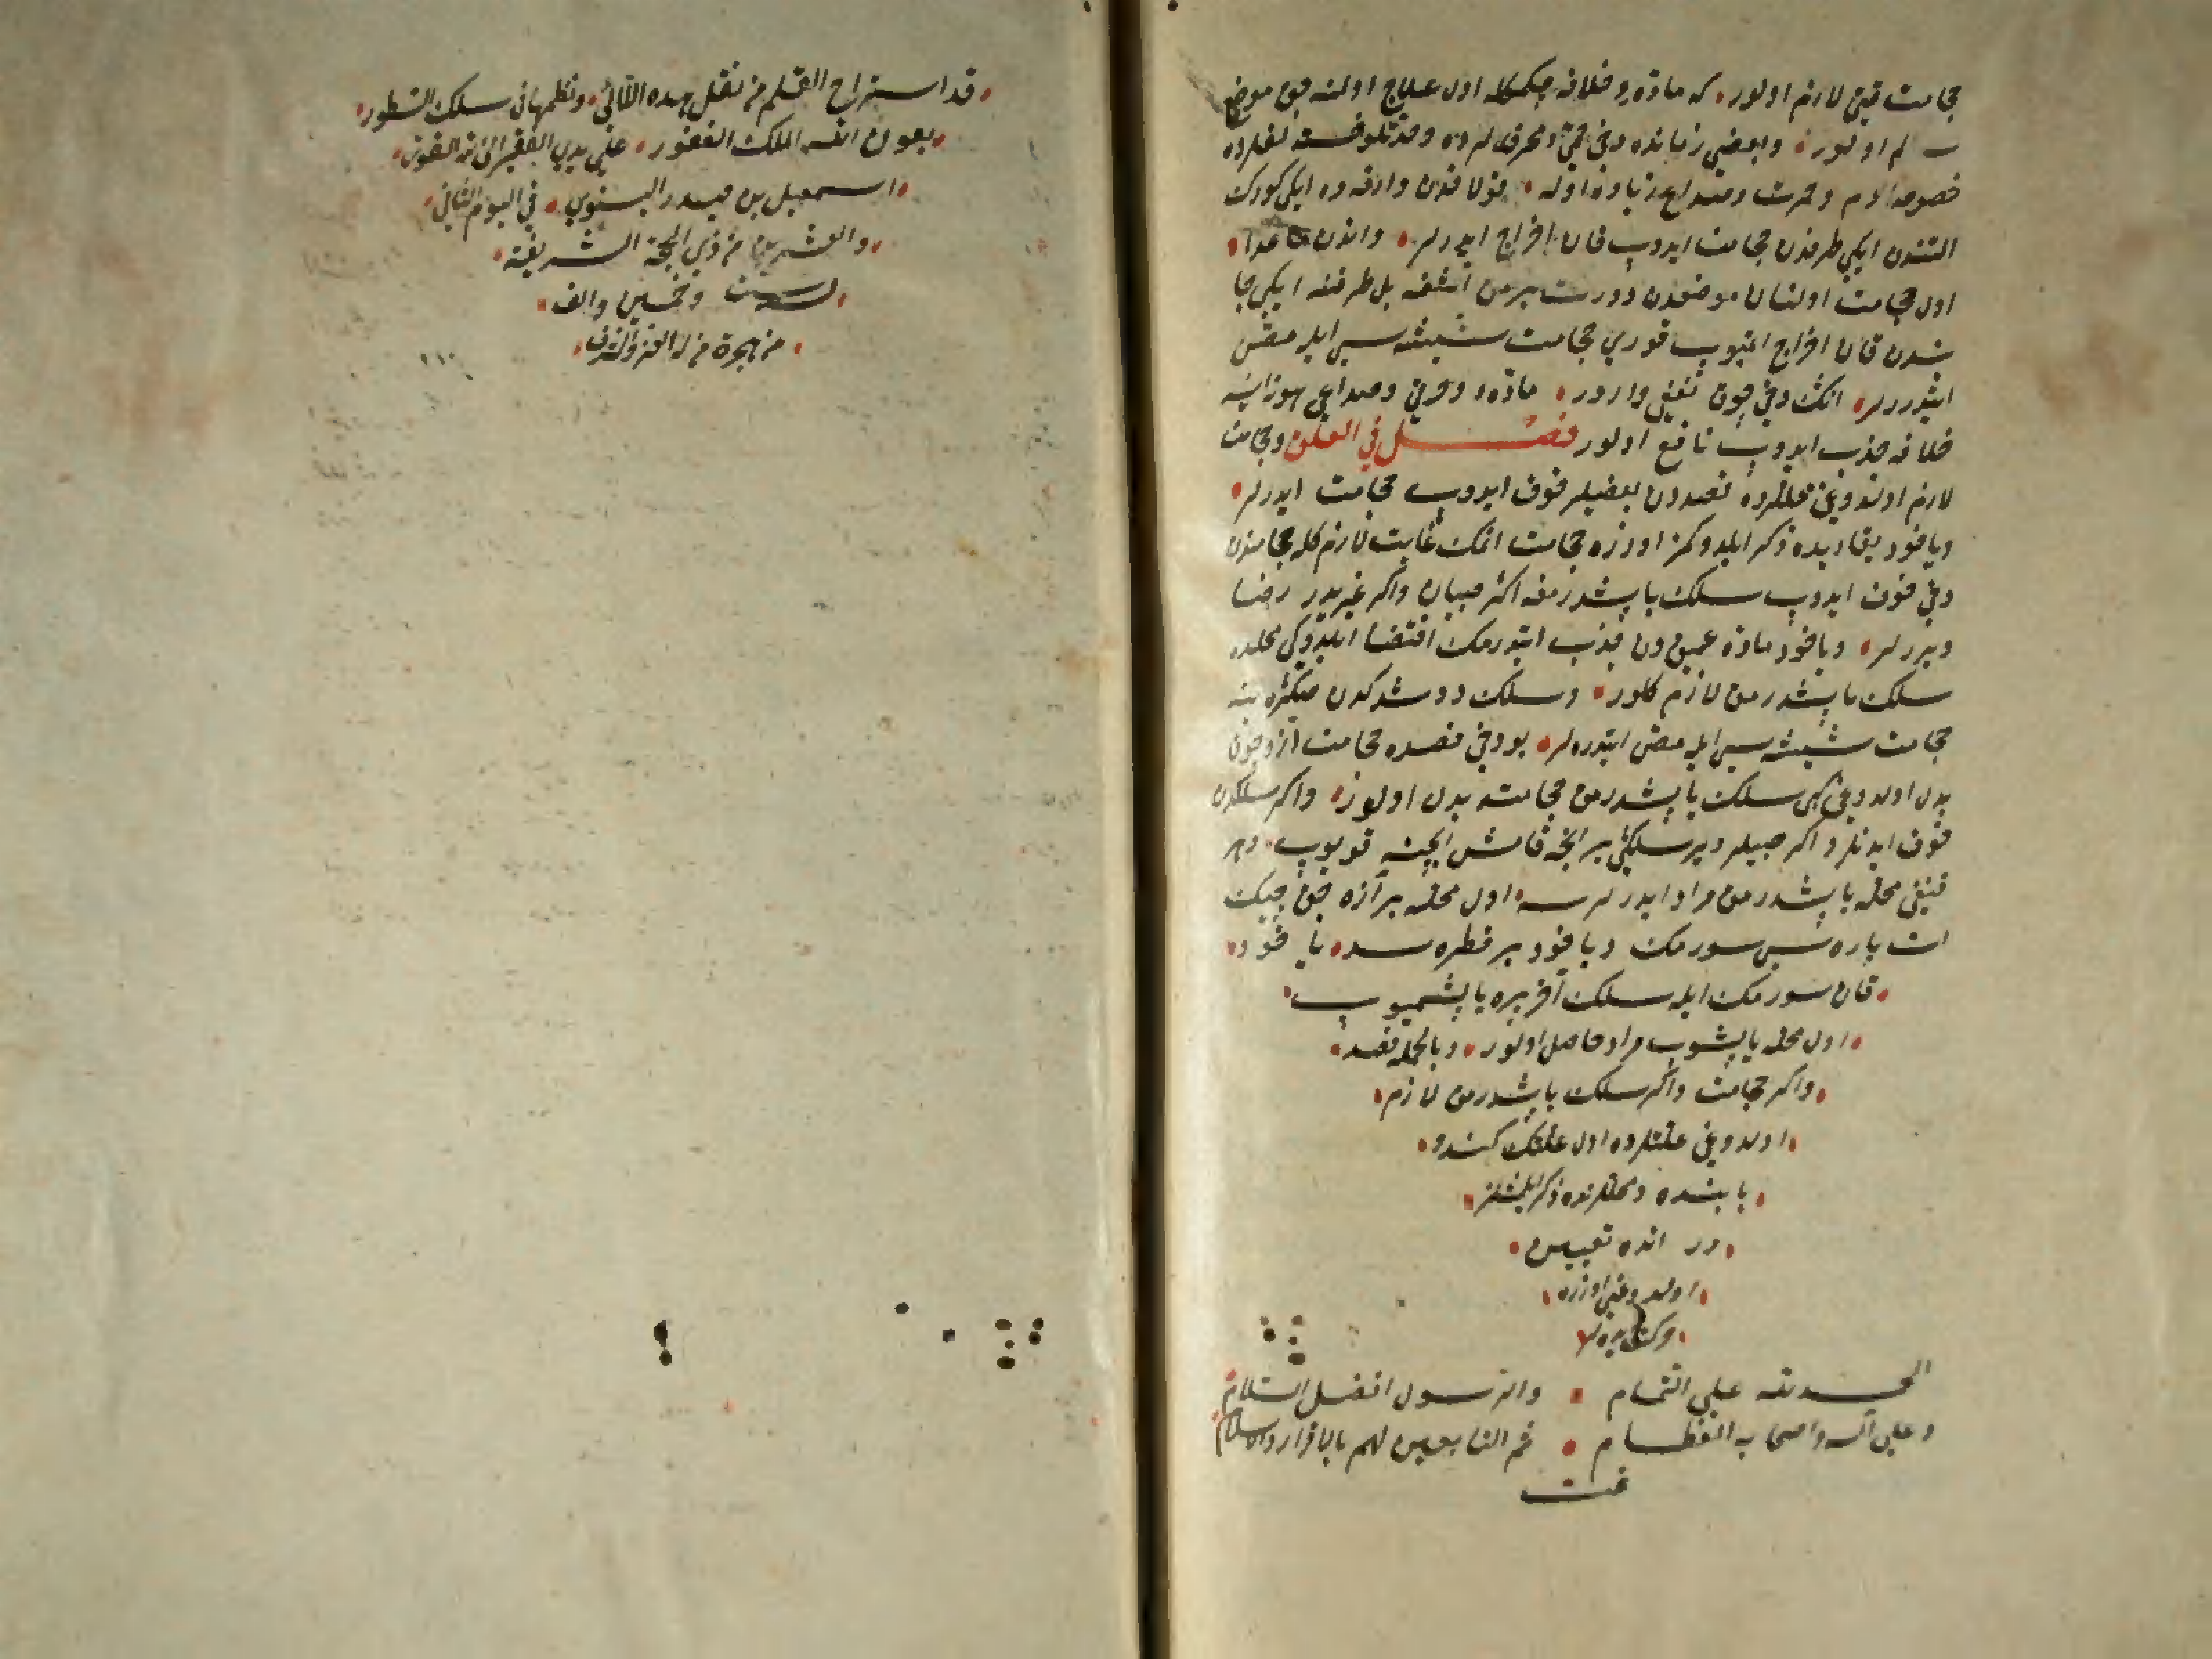 حجامت قتی لازم اولور، که مادّه‌یی خلافه چکمکله اول علاج اولنه جق موضع
سالم اولور، وبعضی زمانده دخی حمّی محرقه‌لرده
خصوصا دم وحمرت وصداع زیاده اوله، قولاقدن وارقه‌ده ایکی کورک
التندن ایکی طرفدن حجامت ایدوب قان اخراج ایدرلر، واندن ماعدا
اول حجامت اولنان موضعدن دورت بیرمق اشغه بل طرفنه ایکی جا
نبدن قان اخراج اتمیوب قوری حجامت شیشه‌سی ایله مصّ
ایتدررلر، انک دخی چوق نفعی واردر، مادّه‌یی وحرقتی وصداعی
خلافه جذب ایدوب نافع اولور فصل في العلق وحجامت
لازم اولدوغی محللرده فصددن بعضیلر خوف ایدوب حجامت ایدرلر،
ویاخود یقاریده ذکر ایلدوکمز اوزره حجامت اتمک غایت لازم کله حجامتدن
دخی خوف ایدوب سلک یاپشدرمغه اکثر صبیان واکر غیریلر رضا
ویررلر، ویاخود مادّه عمیق‌دن جذب ایتدرمک اقتضا ایلدوکی محلده
سلک یاپشدرمق لازم کلور، وسلک دوشدکدن صکره ینه
حجامت شیشه‌سی ایله مصّ ایتدره‌لر، بو دخی فصده حجامت
بدل اولدوغی کبی سلک یاپشدرمق حجامته بدل اولور، واکر سلکدن
خوف ایدنلر واکر صبیلر در سلکی بر انجه قامش ایچنه قویوب،
قنغی محله یاپشدرمق مراد ایدرلرسه، اول محله بر ازه جق چیک
ات پاره‌سی سورمک ویاخود بر قطره سود، یاخود
، قان سورمک ایله سلک آخر یره یاپشمیوب،
، اول محله یاپشوب مراد حاصل اولور، وبالجمله فصد،
، واکر حجامت واکر سلک یاپشدرمق لازم،
، اولدوغی علتلرده اول علتک کندو،
، بابنده ومحللرنده ذکر اولنمشدر،
، در انده تعیین،
، اولدوغی اوزره،
، حرکت ایده‌لر،
الحمد لله على التمام ، والرسول افضل السلام
وعلى آله واصحابه العظام ، ثم التابعين لهم بالاقرار والاسلام
تمت
، قد استراح القلم من نقل هذه اللآلئ، ونظمها في سلك السطور،
، بعون الله الملك الغفور، على يد الفقير الى الله القوي،
، اسمعيل بن حيدر البسنوي، في اليوم الثاني،
، والعشرين من ذي الحجة الشريفة،
، لسنة ست وخمسين والف،
، من هجرة من له العز والشرف،